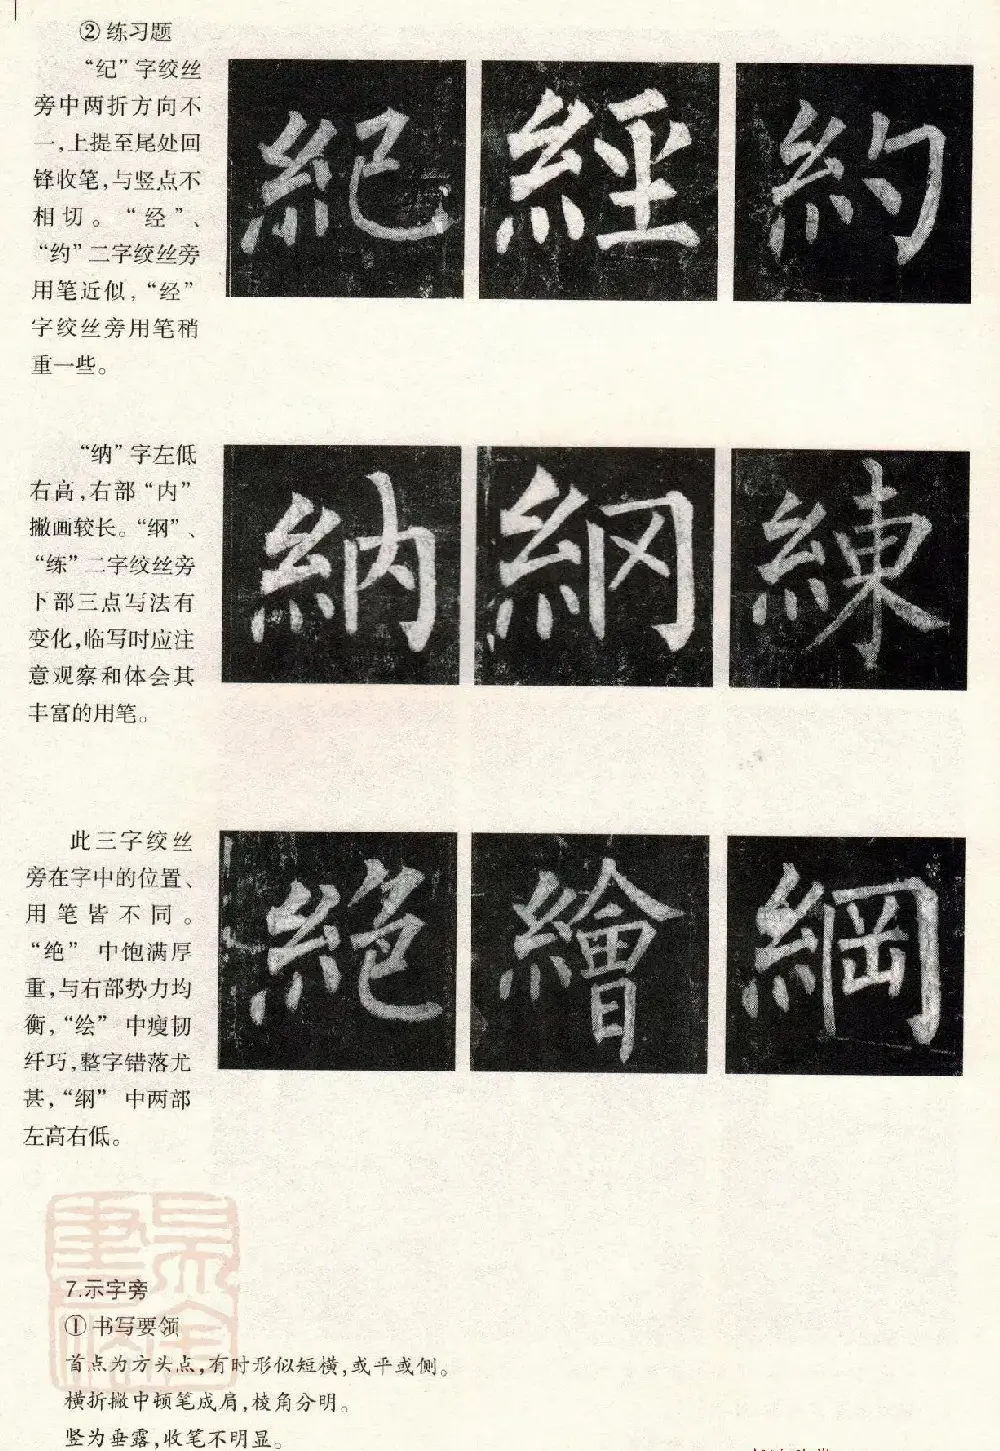 ② 练习题
“纪”字绞丝
旁中两折方向不
一,上提至尾处回
锋收笔,与竖点不
相切。“经”、
“约”二字绞丝旁
用笔近似,“经”
字绞丝旁用笔稍
重一些。
紀 經 約
“纳”字左低
右高,右部“内”
撇画较长。“纲”、
“练”二字绞丝旁
下部三点写法有
变化,临写时应注
意观察和体会其
丰富的用笔。
納 綱 練
此三字绞丝
旁在字中的位置、
用笔皆不同。
“绝” 中饱满厚
重,与右部势力均
衡,“绘” 中瘦韧
纤巧,整字错落尤
甚,“纲” 中两部
左高右低。
絕 繪 綱
7.示字旁
① 书写要领
首点为方头点,有时形似短横,或平或侧。
横折撇中顿笔成肩,棱角分明。
竖为垂露,收笔不明显。